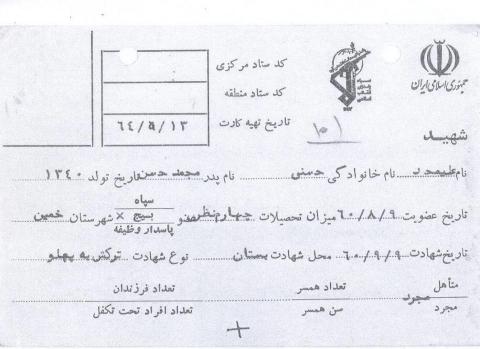 جمهوری اسلامی ایران
کد ستاد مرکزی
کد ستاد منطقه
تاریخ تهیه کارت
شهید
نام علیمحمد نام خانوادگی حسنی نام پدر محمد حسن تاریخ تولد ۱۳۴۰
تاریخ عضویت ۶۰/۸/۹ میزان تحصیلات چهارم نظری عضو سپاه بسیج × پاسدار وظیفه شهرستان خمین
تاریخ شهادت ۶۰/۹/۹ محل شهادت بستان نوع شهادت ترکش به پهلو
متأهل مجرد تعداد همسر تعداد فرزندان
مجرد سن همسر تعداد افراد تحت تکفل